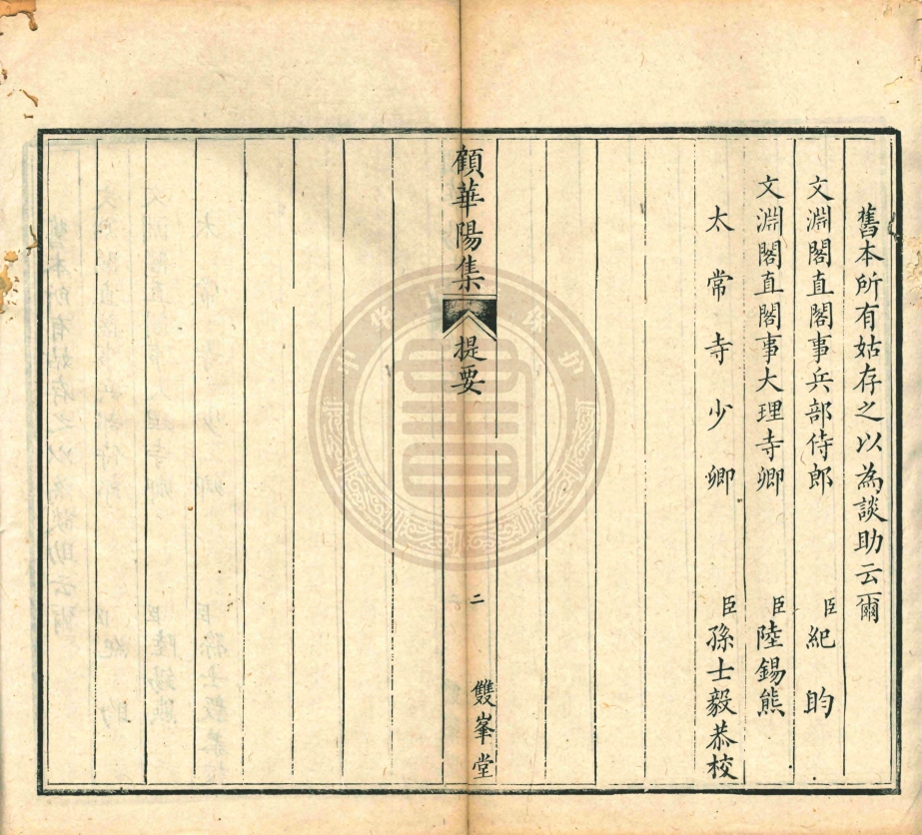 舊本所有姑存之以為談助云爾
文淵閣直閣事兵部侍郎 臣紀昀
文淵閣直閣事大理寺卿 臣陸錫熊
太常寺少卿 臣孫士毅恭校
顧華陽集 提要 二 雙峯堂